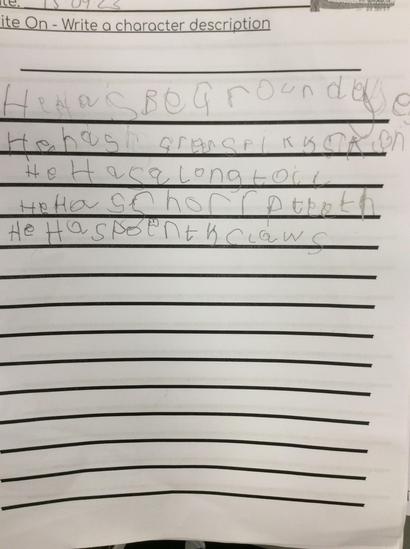 15 09 23
ite On - Write a character description
He Has Be G round eye
He hash grean spikk skon
He Has a long tail
He Has shorrp teeth
He Has poentk claws